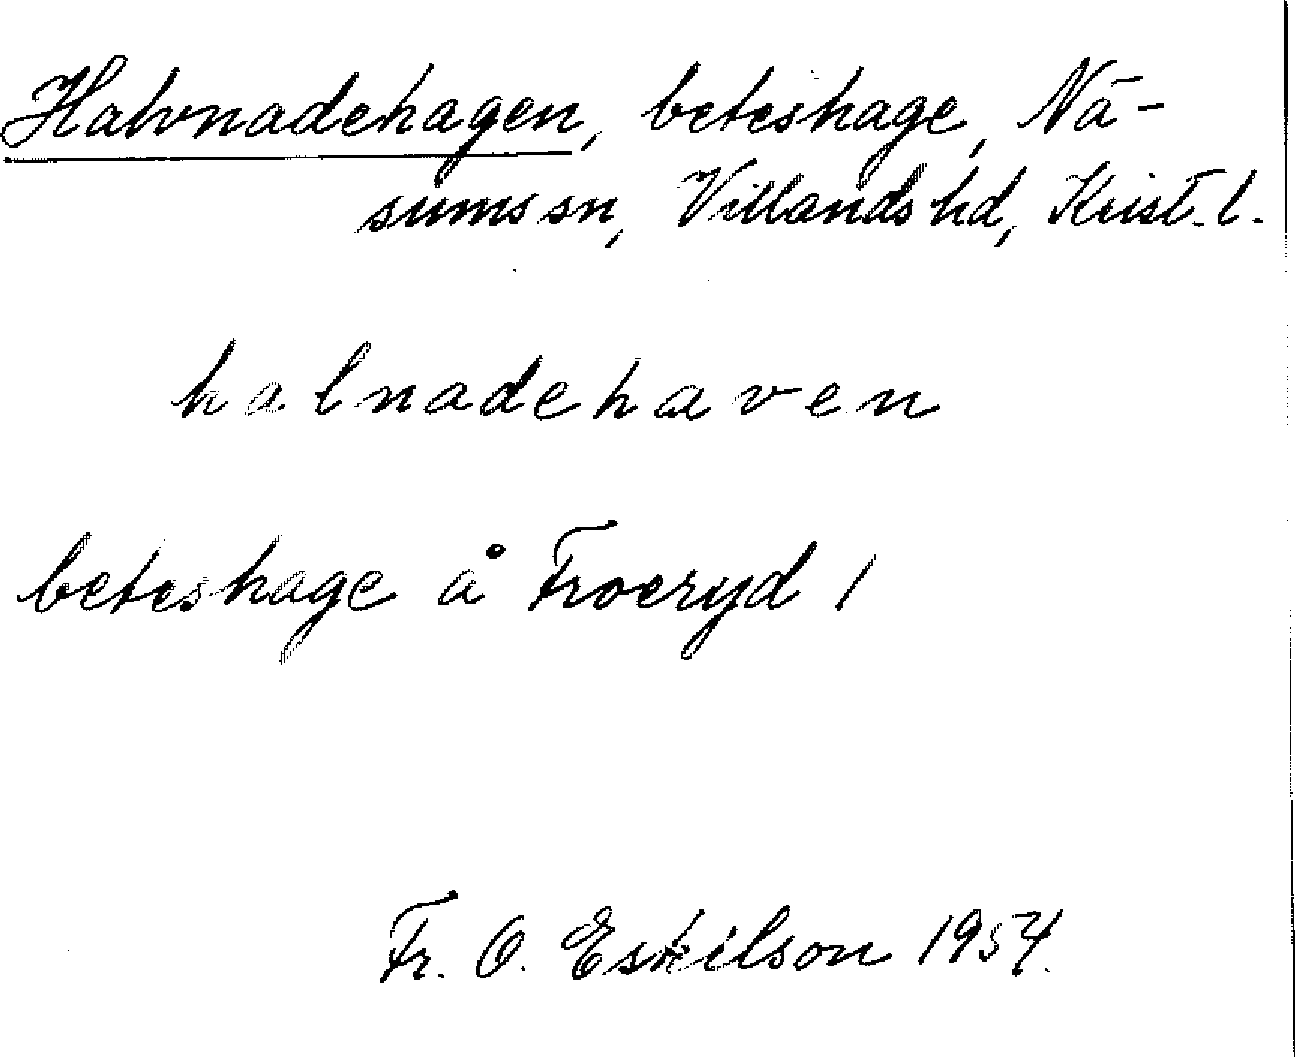 Halvnadehagen, beteshage, Nä-
sums sn, Villands hd, Krist. l.
halnadehaven
beteshage å Froeryd 1
Fr. O. Eskilson 1954.